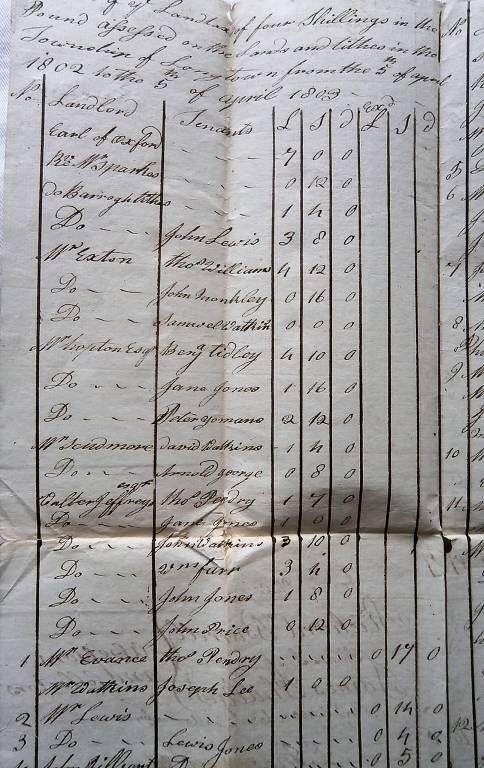 of ye Landtax of four Shillings in the
Pound assessed on the Lands and tithes in the
Township of Longtown from the 5th of april
1802 to the 5th of April 1803
No Landlord Tenants £ S d Exd £ S d
Earl of Oxford - - - 7 0 0
Rd Mr Sparkes - - - 0 12 0
do tithes - - - 1 4 0
Do - - John Lewis 3 8 0
Mr Exton Thos Williams 4 12 0
Do - - John Monkley 0 16 0
Do - - Samuel Watkin 0 0 0
Esqr Benja Tidley 4 10 0
Do - - - Jane Jones 1 16 0
Do - - - Peter Yomans 2 12 0
Mr Scudmore David Watkins 1 4 0
Do - - - Arnold George 0 8 0
Jeffreys esqr Thos Pendry 1 7 0
Do - - - Jane Jones 1 0 0
Do - - - John Watkins 3 10 0
Do - - - Wm furr 3 4 0
Do - - - John Jones 1 8 0
Do - - - John Price 0 12 0
1 Mr Evance Thos Pendry - - - 0 17 0
Mr Watkins Joseph Lee 1 0 0
2 Mr Lewis - - - 0 14 0
3 Do - - Lewis Jones 0 4 0
John 0 5 0
No
5
6
7
8
9
10
11
12